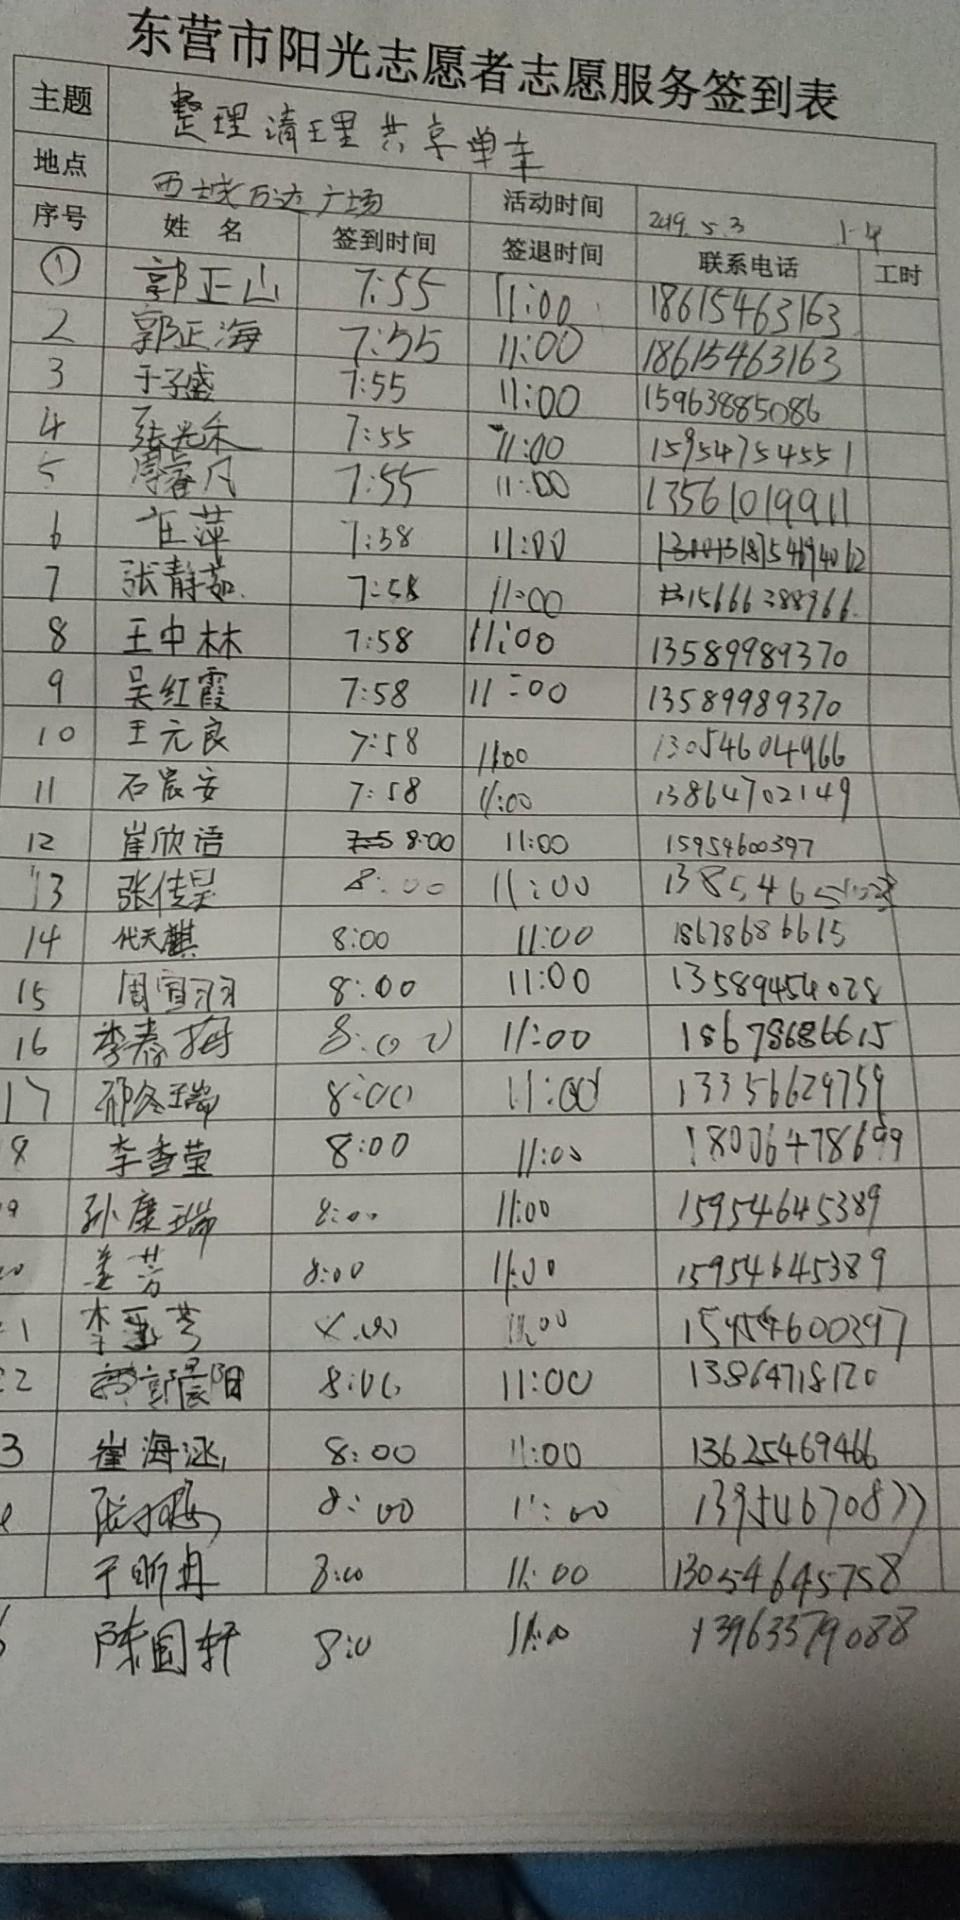 东营市阳光志愿者志愿服务签到表
主题 整理清理共享单车
地点 西城万达广场 活动时间 2019.5.3 1-4
序号 姓名 签到时间 签退时间 联系电话 工时
① 郭正山 7:55 11:00 18615463163
2 郭正海 7:55 11:00 18615463163
3 于子盛 7:55 11:00 15963885086
4 张光禾 7:55 11:00 15954754551
5 周睿凡 7:55 11:00 13561019911
6 庄萍 7:58 11:00
7 张静茹 7:58 11:00 15666388966
8 王中林 7:58 11:00 13589989370
9 吴红霞 7:58 11:00 13589989370
10 王元良 7:58 11:00 13054604966
11 石宸安 7:58 11:00 13864702149
12 崔欣语 8:00 11:00 15954600397
13 张佳昊 8:00 11:00
14 代天麒 8:00 11:00 18678686615
15 周宜羽 8:00 11:00 13589454028
16 李春梅 8:00 11:00 18678686615
17 邢冬瑞 8:00 11:00 13356629759
8 李香莹 8:00 11:00 18006478699
9 孙康瑞 8:00 11:00 15954645389
20 姜芳 8:00 11:00 15954645389
1 李 芳 11:00 15954600397
22 郭晨阳 8:00 11:00 13864718120
3 崔海涵 8:00 11:00 13625469466
8:00 11:00 13954670877
于昕冉 8:00 11:00 13054645758
陈国轩 8:0 11:00 13963379088